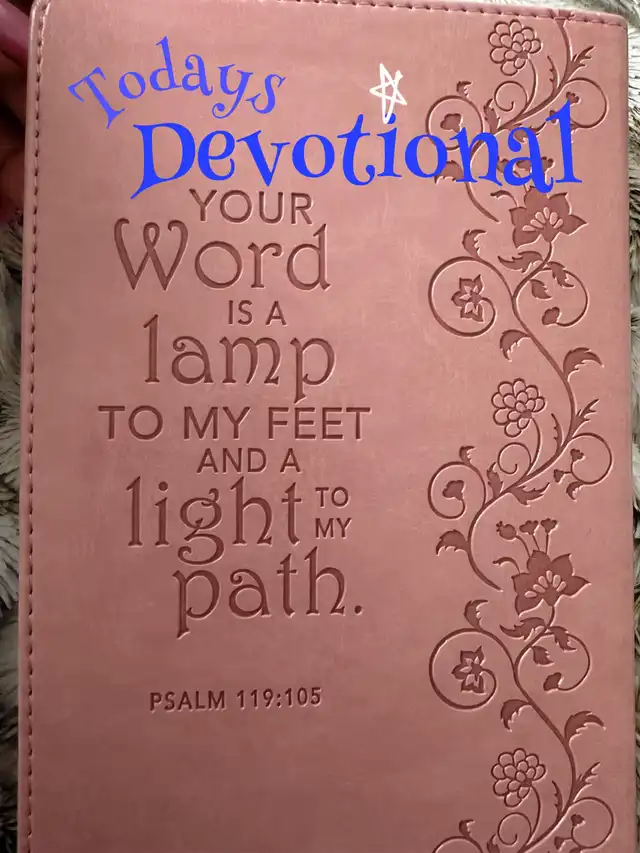 Todays
Devotional
YOUR
Word
IS A
lamp
TO MY FEET
AND A
light TO MY
path.
PSALM 119:105